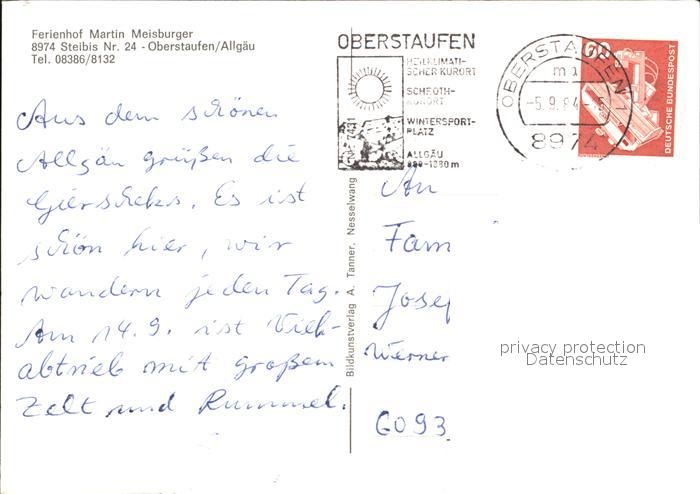 Ferienhof Martin Meisburger
8974 Steibis Nr. 24 - Oberstaufen/Allgäu
Tel. 08386/8132
OBERSTAUFEN
HEILKLIMATI-
SCHER KURORT
SCHROTH-
KURORT
WINTERSPORT-
PLATZ
ALLGÄU
OBERSTAUFEN 1
-5.9.84
8974
60
DEUTSCHE BUNDESPOST
Aus dem schönen
Allgäu grüßen die
Gierscheks. Es ist
schön hier, wir
wandern jeden Tag.
Am 14.9. ist Vieh-
abtrieb mit großem
Zelt und Rummel.
Bildkunstverlag A. Tanner, Nesselwang
An
Fam
Josef
Werner
6093
privacy protection
Datenschutz